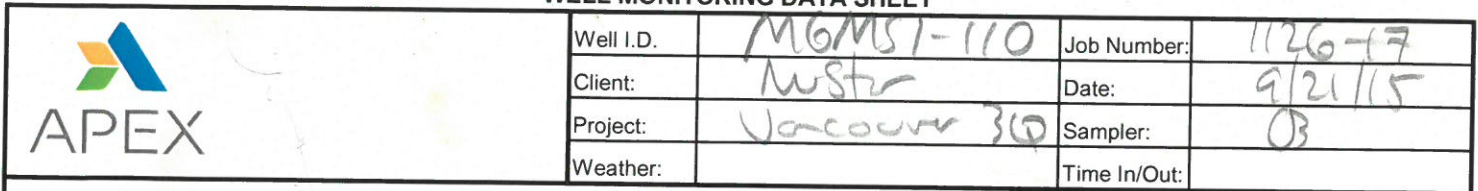 WELL MONITORING DATA SHEET
APEX
Well I.D. MGMS1-110 Job Number: 1126-17
Client: NuStar Date: 9/21/15
Project: Vancouver 3Q Sampler:
Weather: Time In/Out: